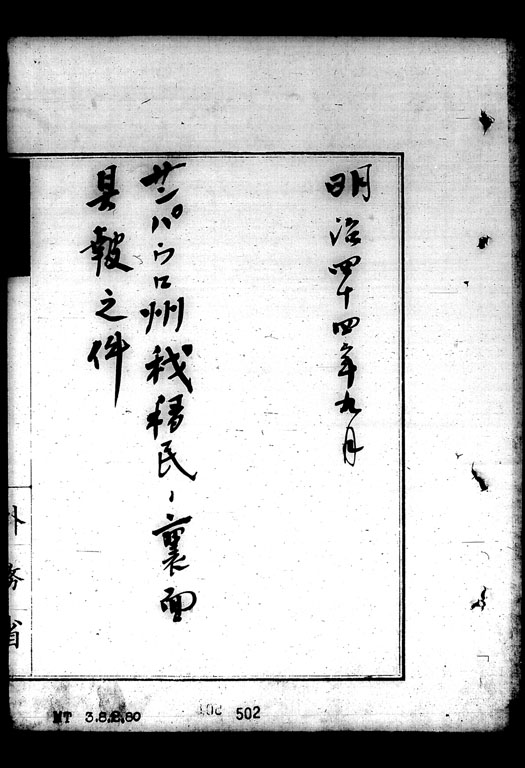 明治四十四年九月
サンパウロ州我移民ノ裏面
具報之件
外務省
MT 3.8.2.80
502